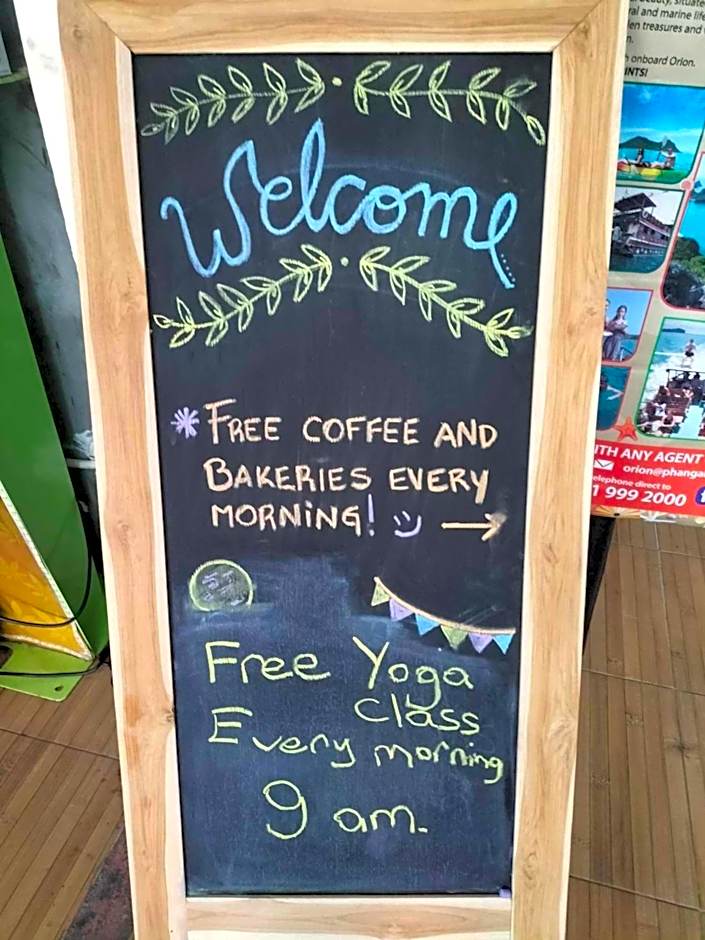 Welcome
* FREE COFFEE AND
BAKERIES EVERY
MORNING! :) →
Free Yoga
Class
Every morning
9 am.
ral and marine life
en treasures and
onboard Orion.
INTS!
ITH ANY AGENT
orion@phanga
elephone direct to
1 999 2000